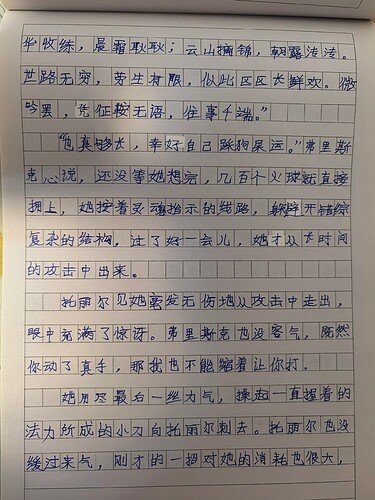 华收练，晨霜耿耿；云山摛锦，朝露漙漙。
世路无穷，劳生有限，似此区区长鲜欢。微
吟罢，凭征鞍无语，往事千端。”
“也真够长，幸好自己踩狗屎运。”弗里斯
克心说，还没等她想完，几百个火球就直接
拥上，她按着灵魂指示的线路，躲避开错综
复杂的结构，过了好一会儿，她才从长时间
的攻击中出来。
托丽尔见她毫发无伤地从攻击中走出，
眼中充满了惊讶。弗里斯克也没客气，既然
你动了真手，那我也不能缩着让你打。
她用尽最后一丝力气，操起一直握着的
法力所成的小刀向托丽尔刺去。托丽尔也没
缓过来气，刚才的一招对她的消耗也很大，